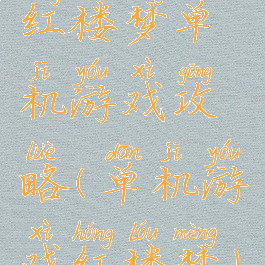 红楼梦单
jī yóu xì gōng
机游戏攻
lüè dān jī yóu
略(单机游
xì hóng lóu mèng
戏红楼梦)